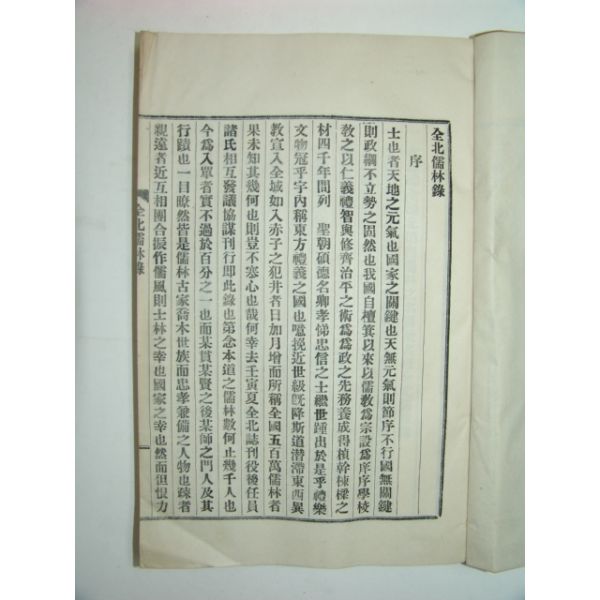 全北儒林錄
序
士也者天地之元氣也國家之關鍵也天無元氣則節序不行國無關鍵
則政綱不立勢之固然也我國自檀箕以來以儒敎爲宗設爲庠序學校
敎之以仁義禮智與修齊治平之術爲爲政之先務養成得楨幹棟樑之
材四千年間列 聖朝碩德名卿孝悌忠信之士繼世踵出於是乎禮樂
文物冠乎宇內稱東方禮義之國也噫挽近世級旣降斯道潜滯東西異
敎宣入全城如入赤子之犯井者日加月增而所稱全國五百萬儒林者
果未知其幾何也則豈不寒心也哉何幸去壬寅夏全北誌刊役後任員
諸氏相互發議協謀刊行卽此錄也第念本道之儒林數何止幾千人也
今爲入單者實不過於百分之一也而某貫某賢之後某師之門人及其
行蹟也一目瞭然皆是儒林古家喬木世族而忠孝兼備之人物也疎者
親遠者近互相團合振作儒風則士林之幸也國家之幸也然而但恨力
全北儒林錄